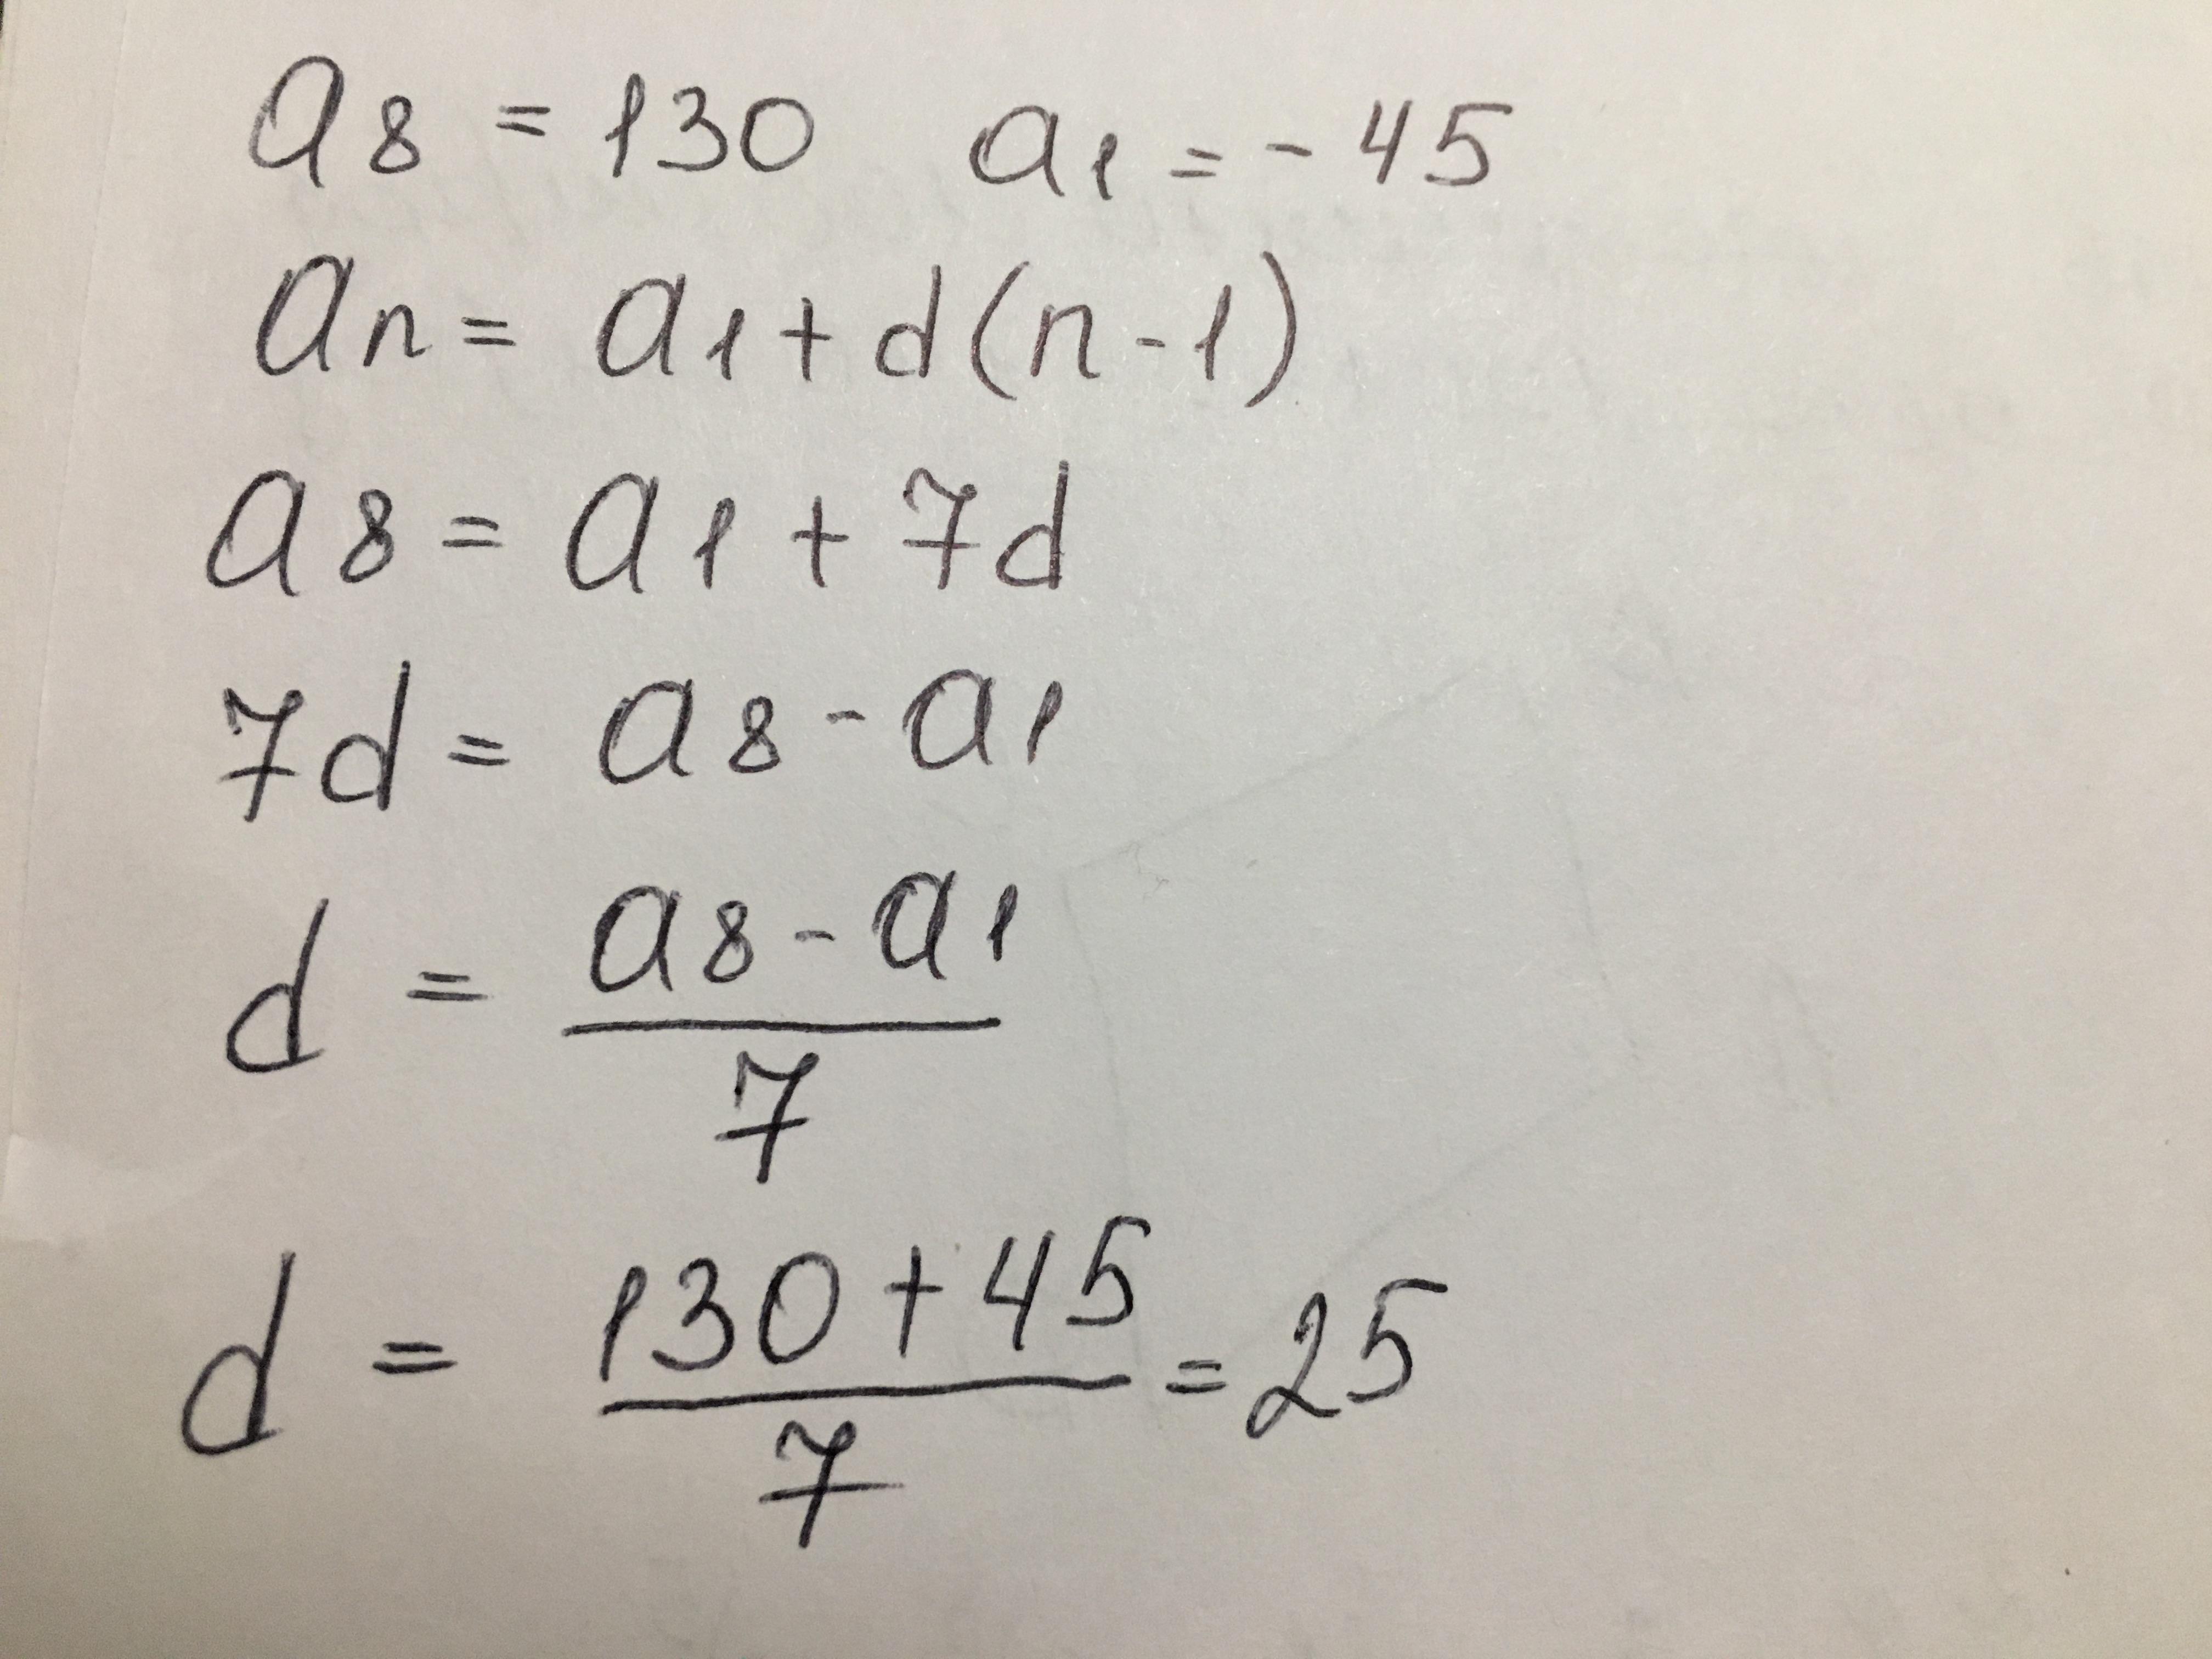 a8 = 130 a1 = - 45
an = a1 + d(n-1)
a8 = a1 + 7d
7d = a8 - a1
d = a8 - a1 / 7
d = 130 + 45 / 7 = 25